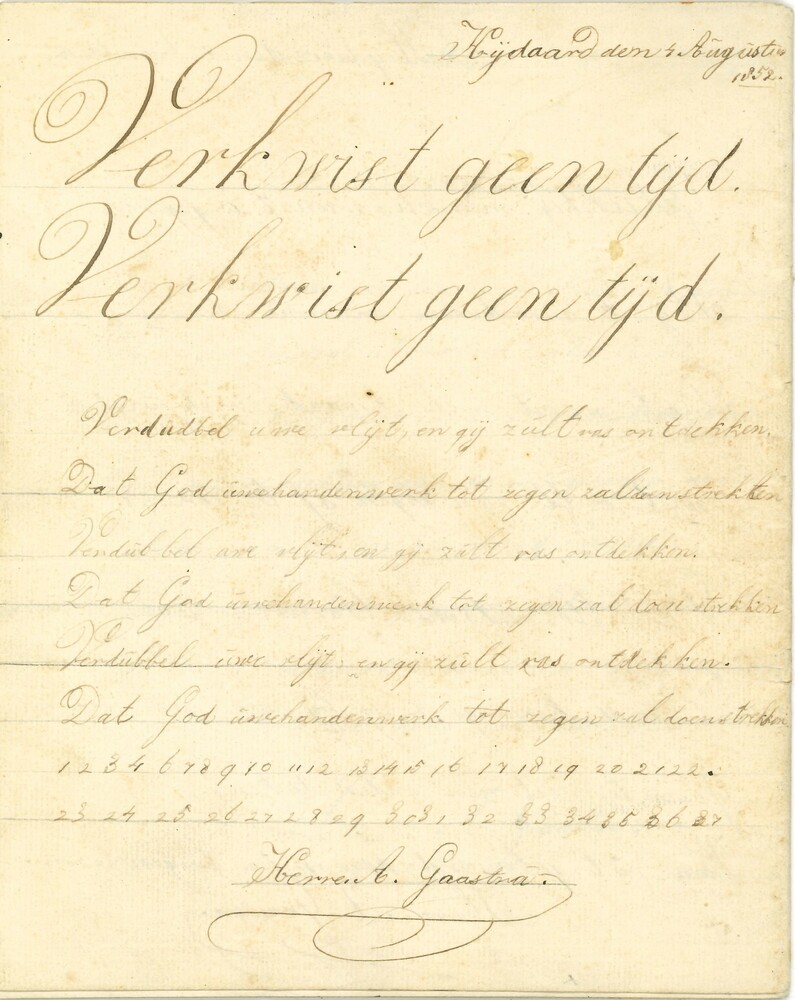 Hijdaard den 4 Augustus
1852.
Verkwist geen tijd.
Verkwist geen tijd.
Verdudbel uwe vlijt, en gij zult ras ontdekken.
Dat God uwehandenwerk tot zegen zal doen strekken
Verdubbel uwe vlijt, en gij zult ras ontdekken.
Dat God uwehandenwerk tot zegen zal doen strekken
Verdubbel uwe vlijt, en gij zult ras ontdekken.
Dat God uwehandenwerk tot zegen zal doen strekken
1 2 3 4 6 7 8 9 10 11 12 13 14 15 16 17 18 19 20 21 22.
23 24 25 26 27 28 29 30 31 32 33 34 35 36 37
Herre. A. Gaastra.